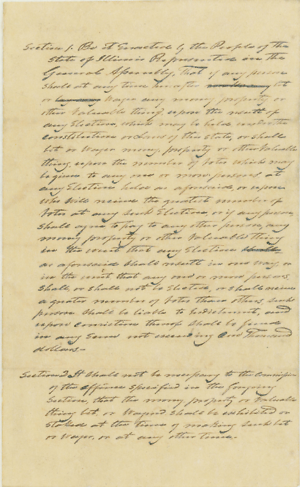 Section 1. Be it Enacted by the People of the
State of Illinois Represented in the
General Assembly, That if any person
shall at any time hereafter bet
or wager any money property or
other Valuable thing upon the result of
any Election which may be held under the
constitution or Laws of this State, or shall
bet or wager money property or other Valuable
thing upon the number of Votes which may
be given to any one or more persons at
any Election held as aforesaid, or upon
who will receive the greatest number of
Votes at any such Election or if any person
shall agree to pay to any other person any
money property or other Valuable thing
in the event that any Election shall
as aforesaid shall result in one way or
in the event that any one or more persons
shall or shall not be Elected, or shall receive
a greater number of Votes than others such
person shall be liable to Indictment, and
upon conviction thereof shall be fined
in any sum not exceeding One Thousand
dollars.
Section 2 It shall not be necessary to the
of the offence specified in the foregoing
Section, that the money property or Valuable
thing bet or wagered shall be exhibited or
staked at the time of making such bet
or wager, or at any other time.